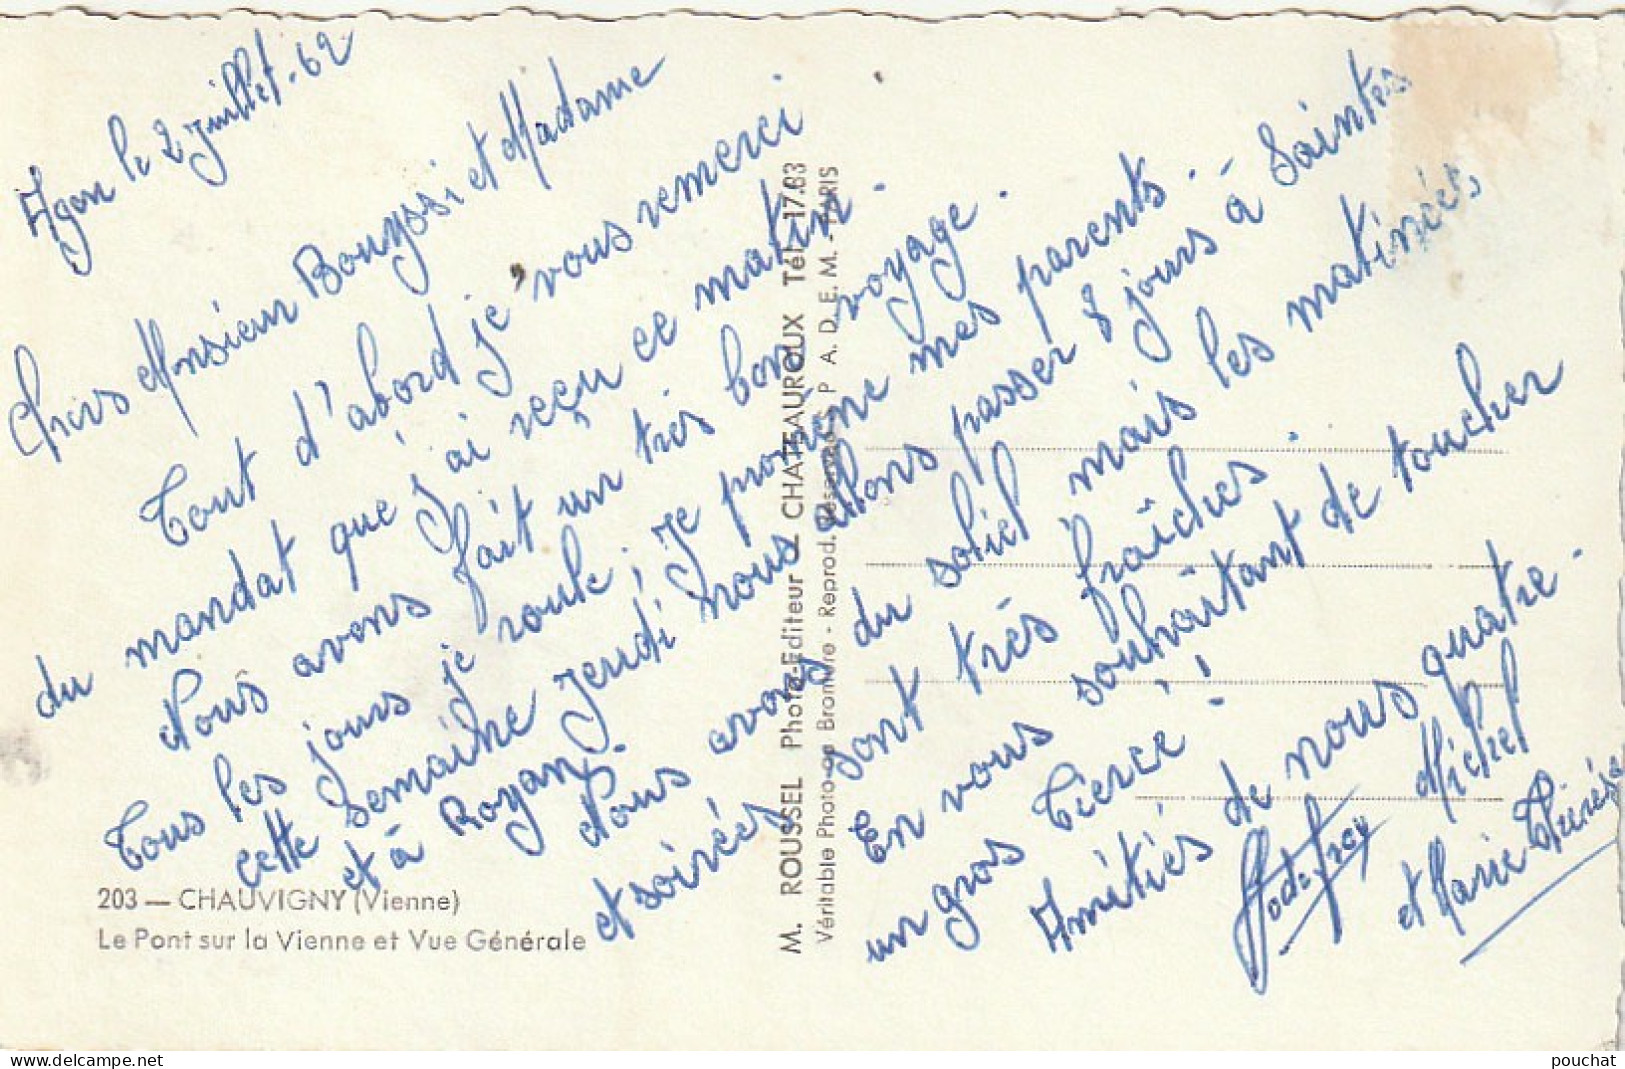 Agen le 2 Juillet. 62
Chers Monsieur Bouyssi et Madame
Tout d'abord je vous remerci
du mandat que j'ai reçu ce matin.
Nous avons fait un très bon voyage.
Tous les jours je roule ; Je promène mes parents.
cette semaine Jeudi nous allons passer 8 jours à Saintes
et à Royan.
Nous avons du soliel mais les matinées
et soirées sont très fraîches.
En vous souhaitant de toucher
un gros Tiercé !!
Amitiés de nous quatre.
Michel
et Marie Thérèse
203 — CHAUVIGNY (Vienne)
Le Pont sur la Vienne et Vue Générale
M. ROUSSEL Photo-Editeur - CHATEAUROUX Tél. 17.83
Véritable Photo au Bromure - Reprod. Réservée P. A. D. E. M. - PARIS
pouchat